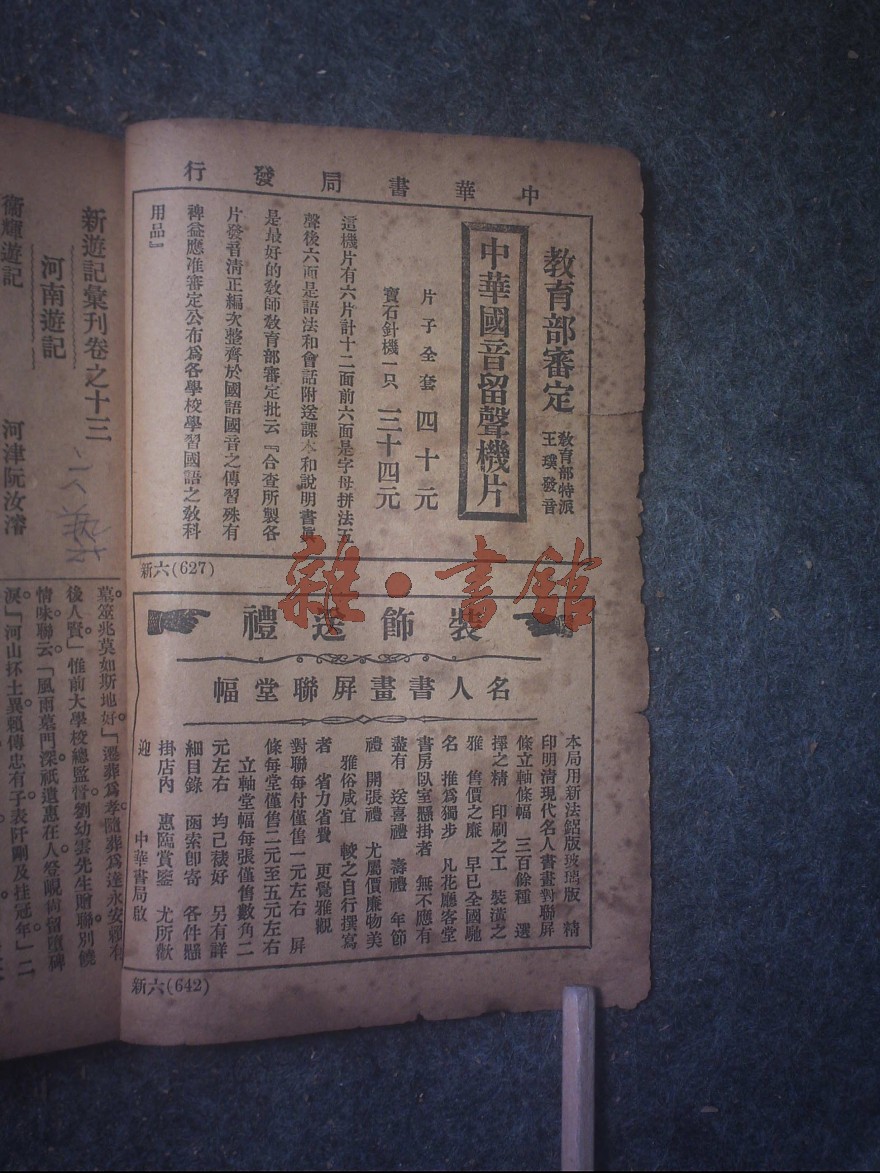 中華書局發行
教育部審定
教育部特派
王璞發音
中華國音留聲機片
片子全套 四十元
寶石針機一只 三十四元
這機片有六片計十二面前六面是字母拼法五
聲後六面是語法和會話附送課本和說明書眞
是最好的敎師敎育部審定批云『合查所製各
片發音淸正編次整齊於國語國音之傳習殊有
裨益應准審定公布爲各學校學習國語之敎科
用品』
新六(627)
裝飾送禮
名人書畫屛聯堂幅
本局用新法鋁版玻璃版 精
印明淸現代名人書畫對聯屏
條立軸條幅 三百餘種 選
擇之精 印刷之工 裝潢之
雅 售價之廉 早已全國馳
名 推爲獨步 凡花廳客堂
書房臥室懸掛者 無不應有
盡有 送喜禮 壽禮 年節
禮 開張禮 尤屬價廉物美
雅俗咸宜 較之自行撰寫
者 省力省費 更覺雅觀
對聯每付僅售一元左右 屏
條每堂僅售二元至五元左右
立軸堂幅每張僅售數角二
元左右 均已裱好 另有詳
細目錄 函索卽寄 各件懸
掛店內 惠臨賞鑒 尤所歡
迎 中華書局啟
新六(642)
新遊記彙刊卷之十三
河南遊記
衞輝遊記 河津阮汝濬
墓筮兆莫如斯地好」「遷葬爲孝隨葬爲達永安賴有
後人賢」惟前大學校總監督劉幼雲先生贈聯別饒
情味聯云「風雨墓門深祇遺惠在人登峴尙留墮碑
淚」「河山抔土異賴傳忠有子表阡剛及挂冠年」二
雜·書館